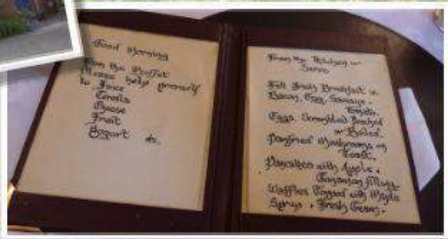 Good Morning
From the Buffet
Please help yourself
to Juice
Cereals
Cheese
Fruit
Yogurt etc.
From the Kitchen
Full Irish Breakfast
Bacon, Egg, Sausage
Tomato.
Eggs Scrambled Poached
or Boiled.
Panfried Mushrooms on
Toast.
Pancakes with Apple &
Cinnamon filling
Waffles Topped with Maple
Syrup & Fresh Cream.